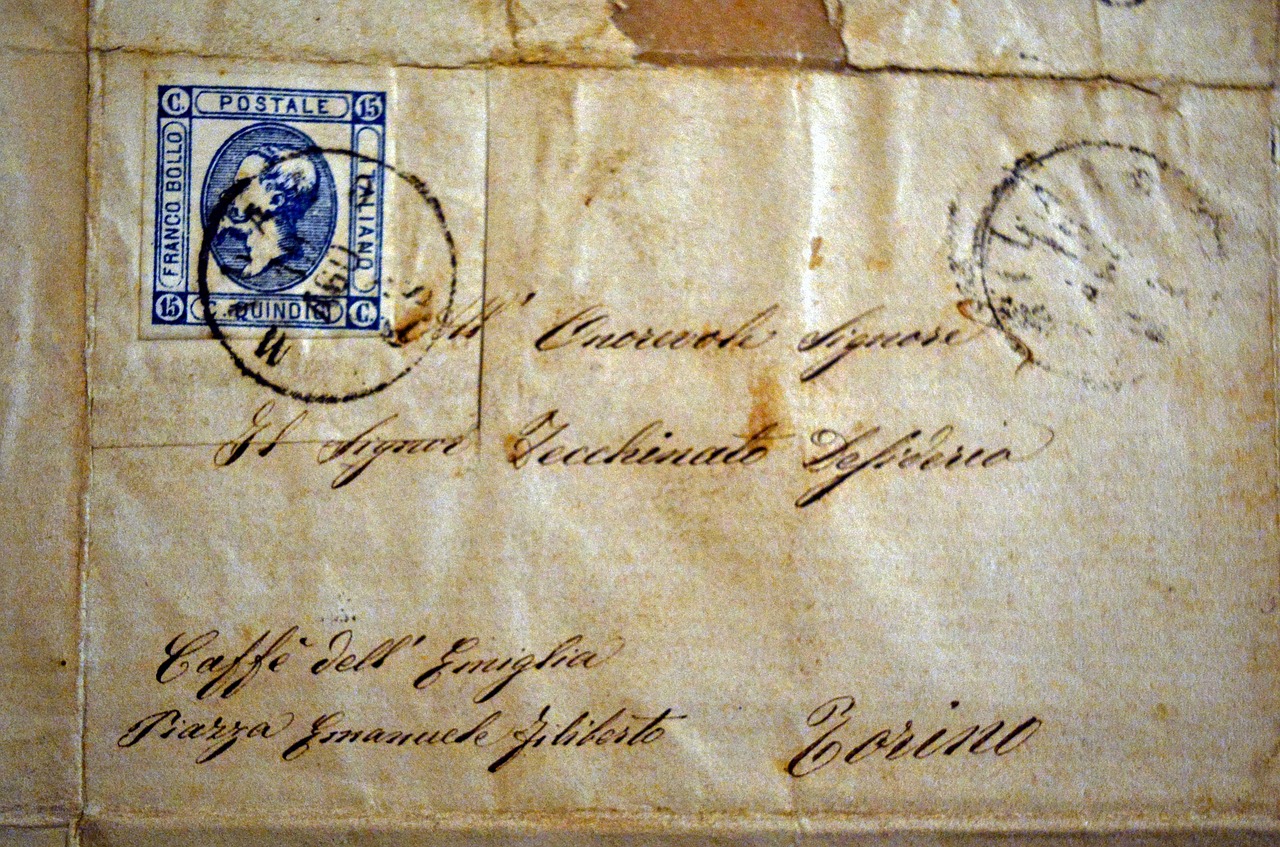 C. POSTALE 15
FRANCO BOLLO
ITALIANO
15 C. QUINDICI C.
All' Onorevole Signore
Il Signor Zecchinato Desiderio
Caffè dell' Emiglia
Piazza Emanuele Filiberto
Torino